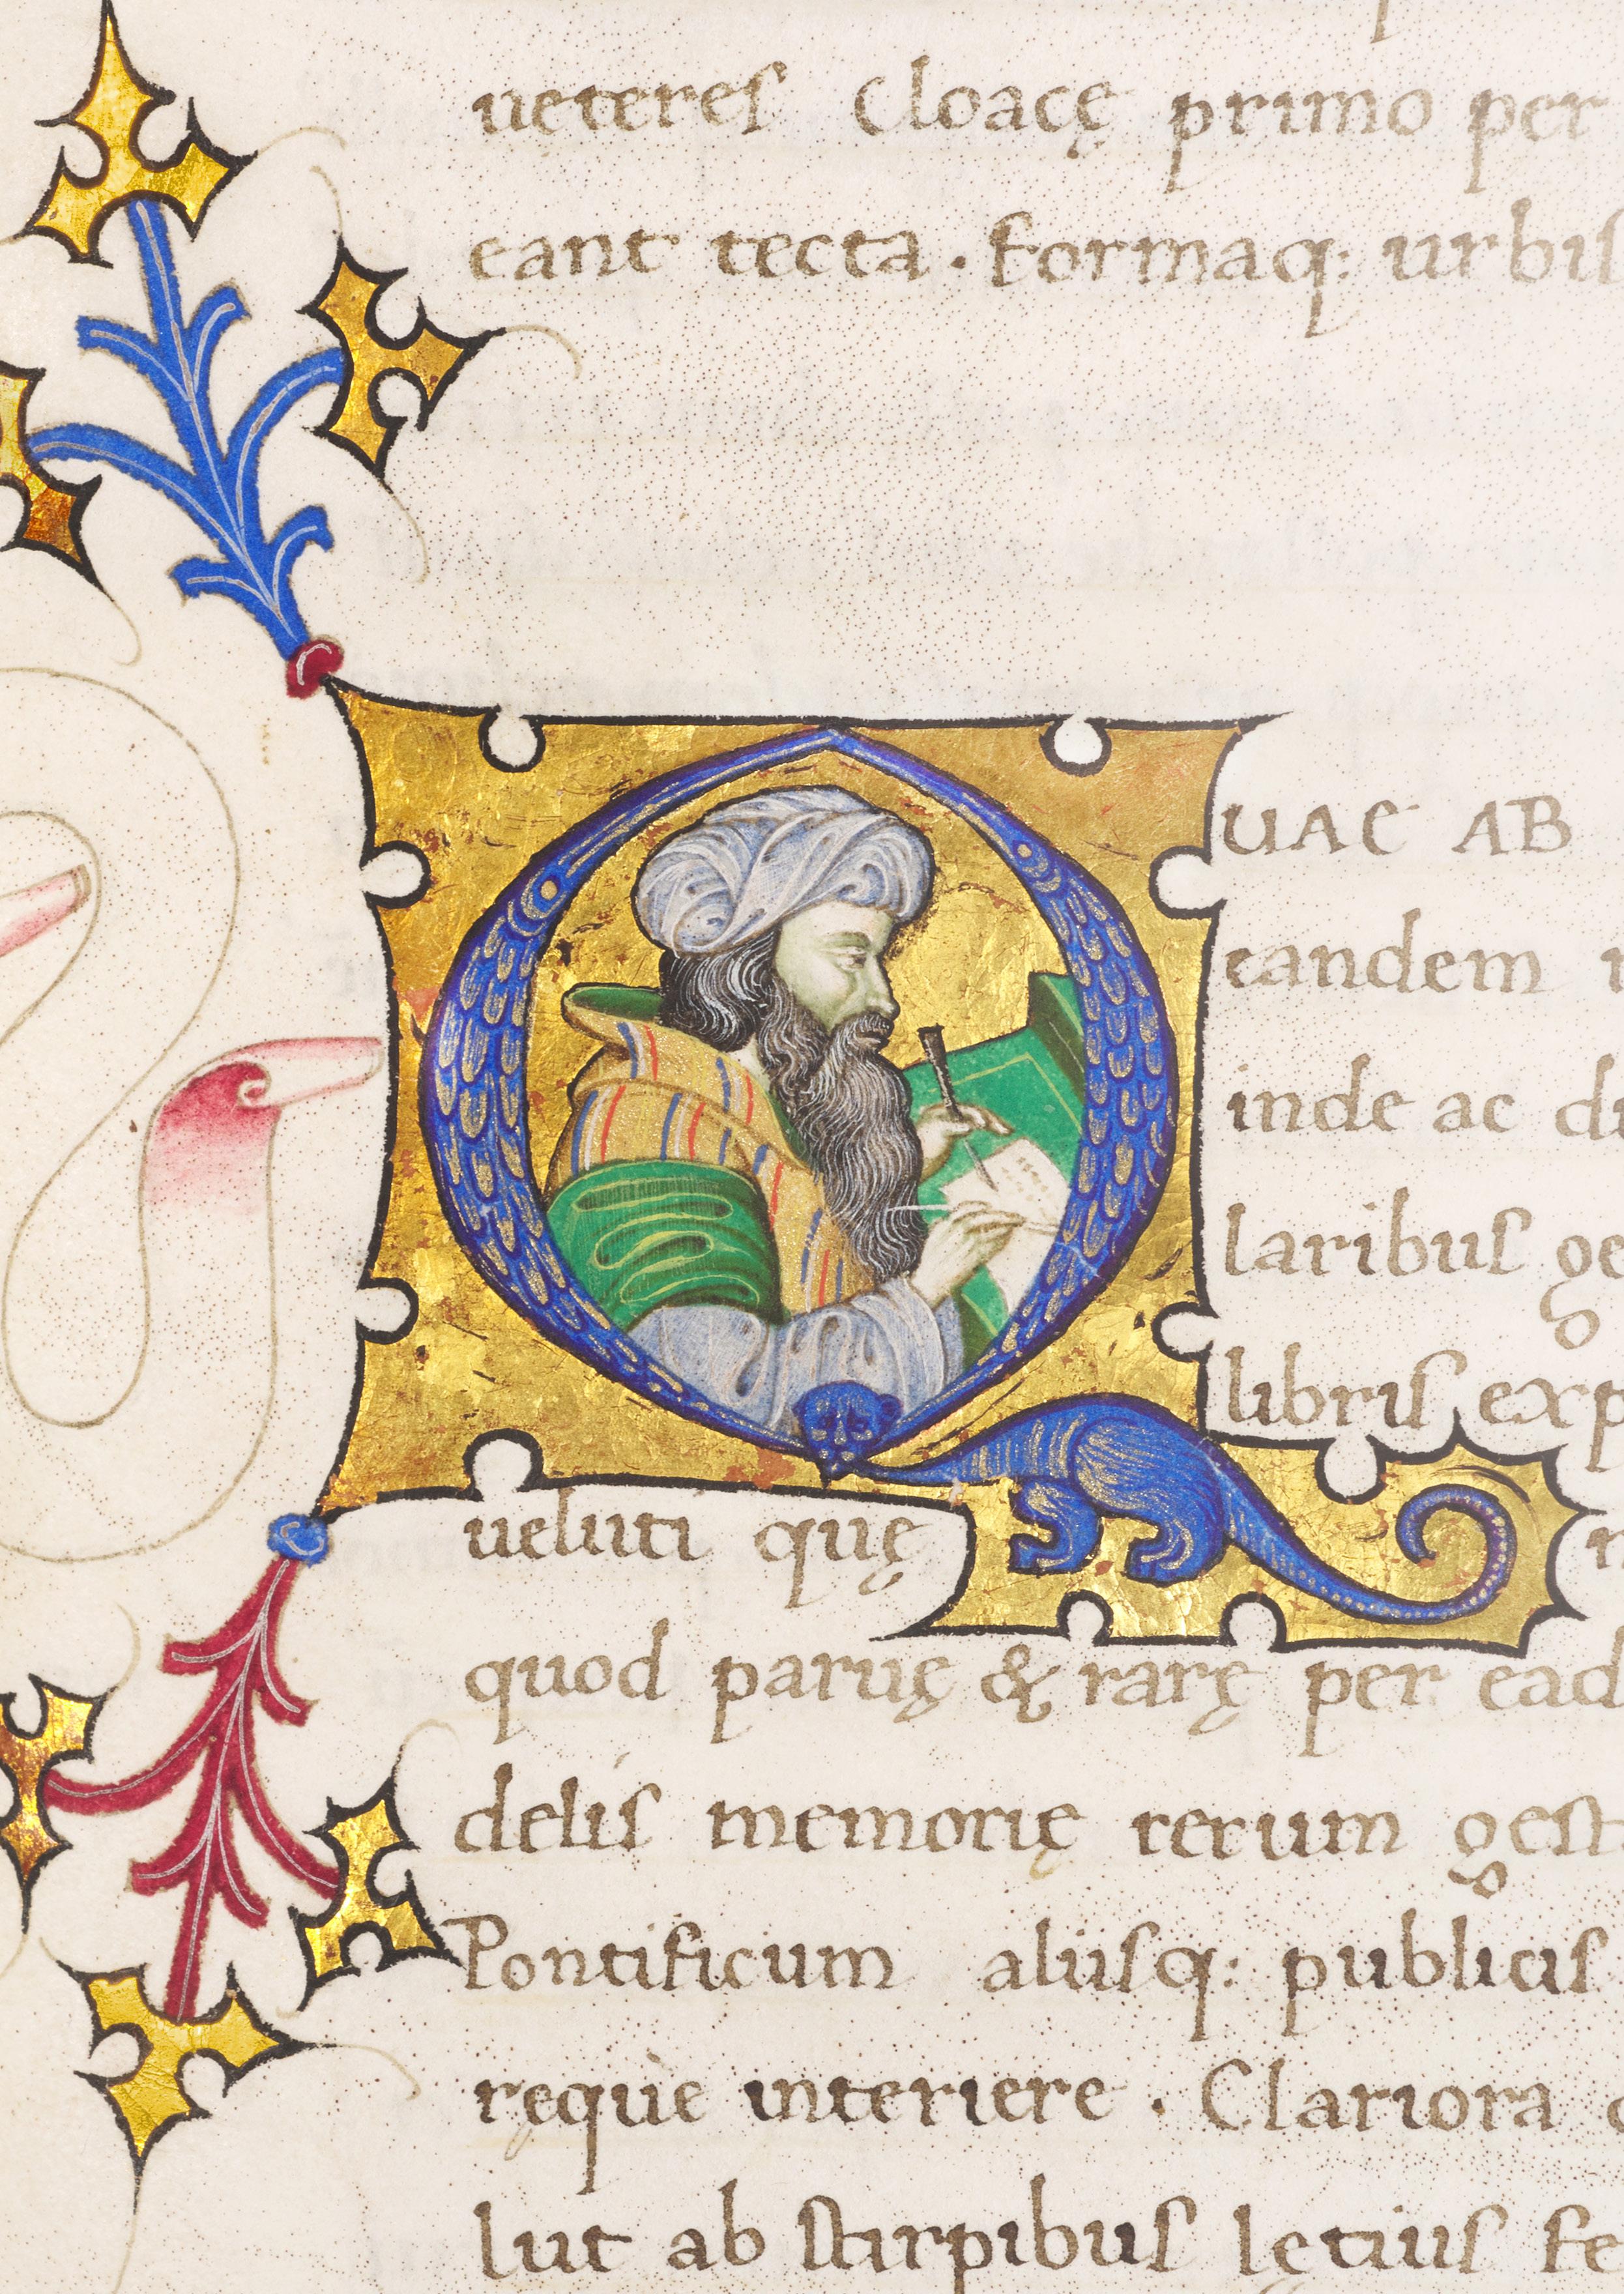 ueteres Cloacę primo per
eant tecta. Formaq: urbis
QUAE AB
eandem
inde ac de
laribus ge
libris exp
ueluti quę
quod paruę & rarę per ead
delis memorię rerum gest
Pontificum aliisq: publicis
ręque interiere. Clariora
lut ab stirpibus lętius fe